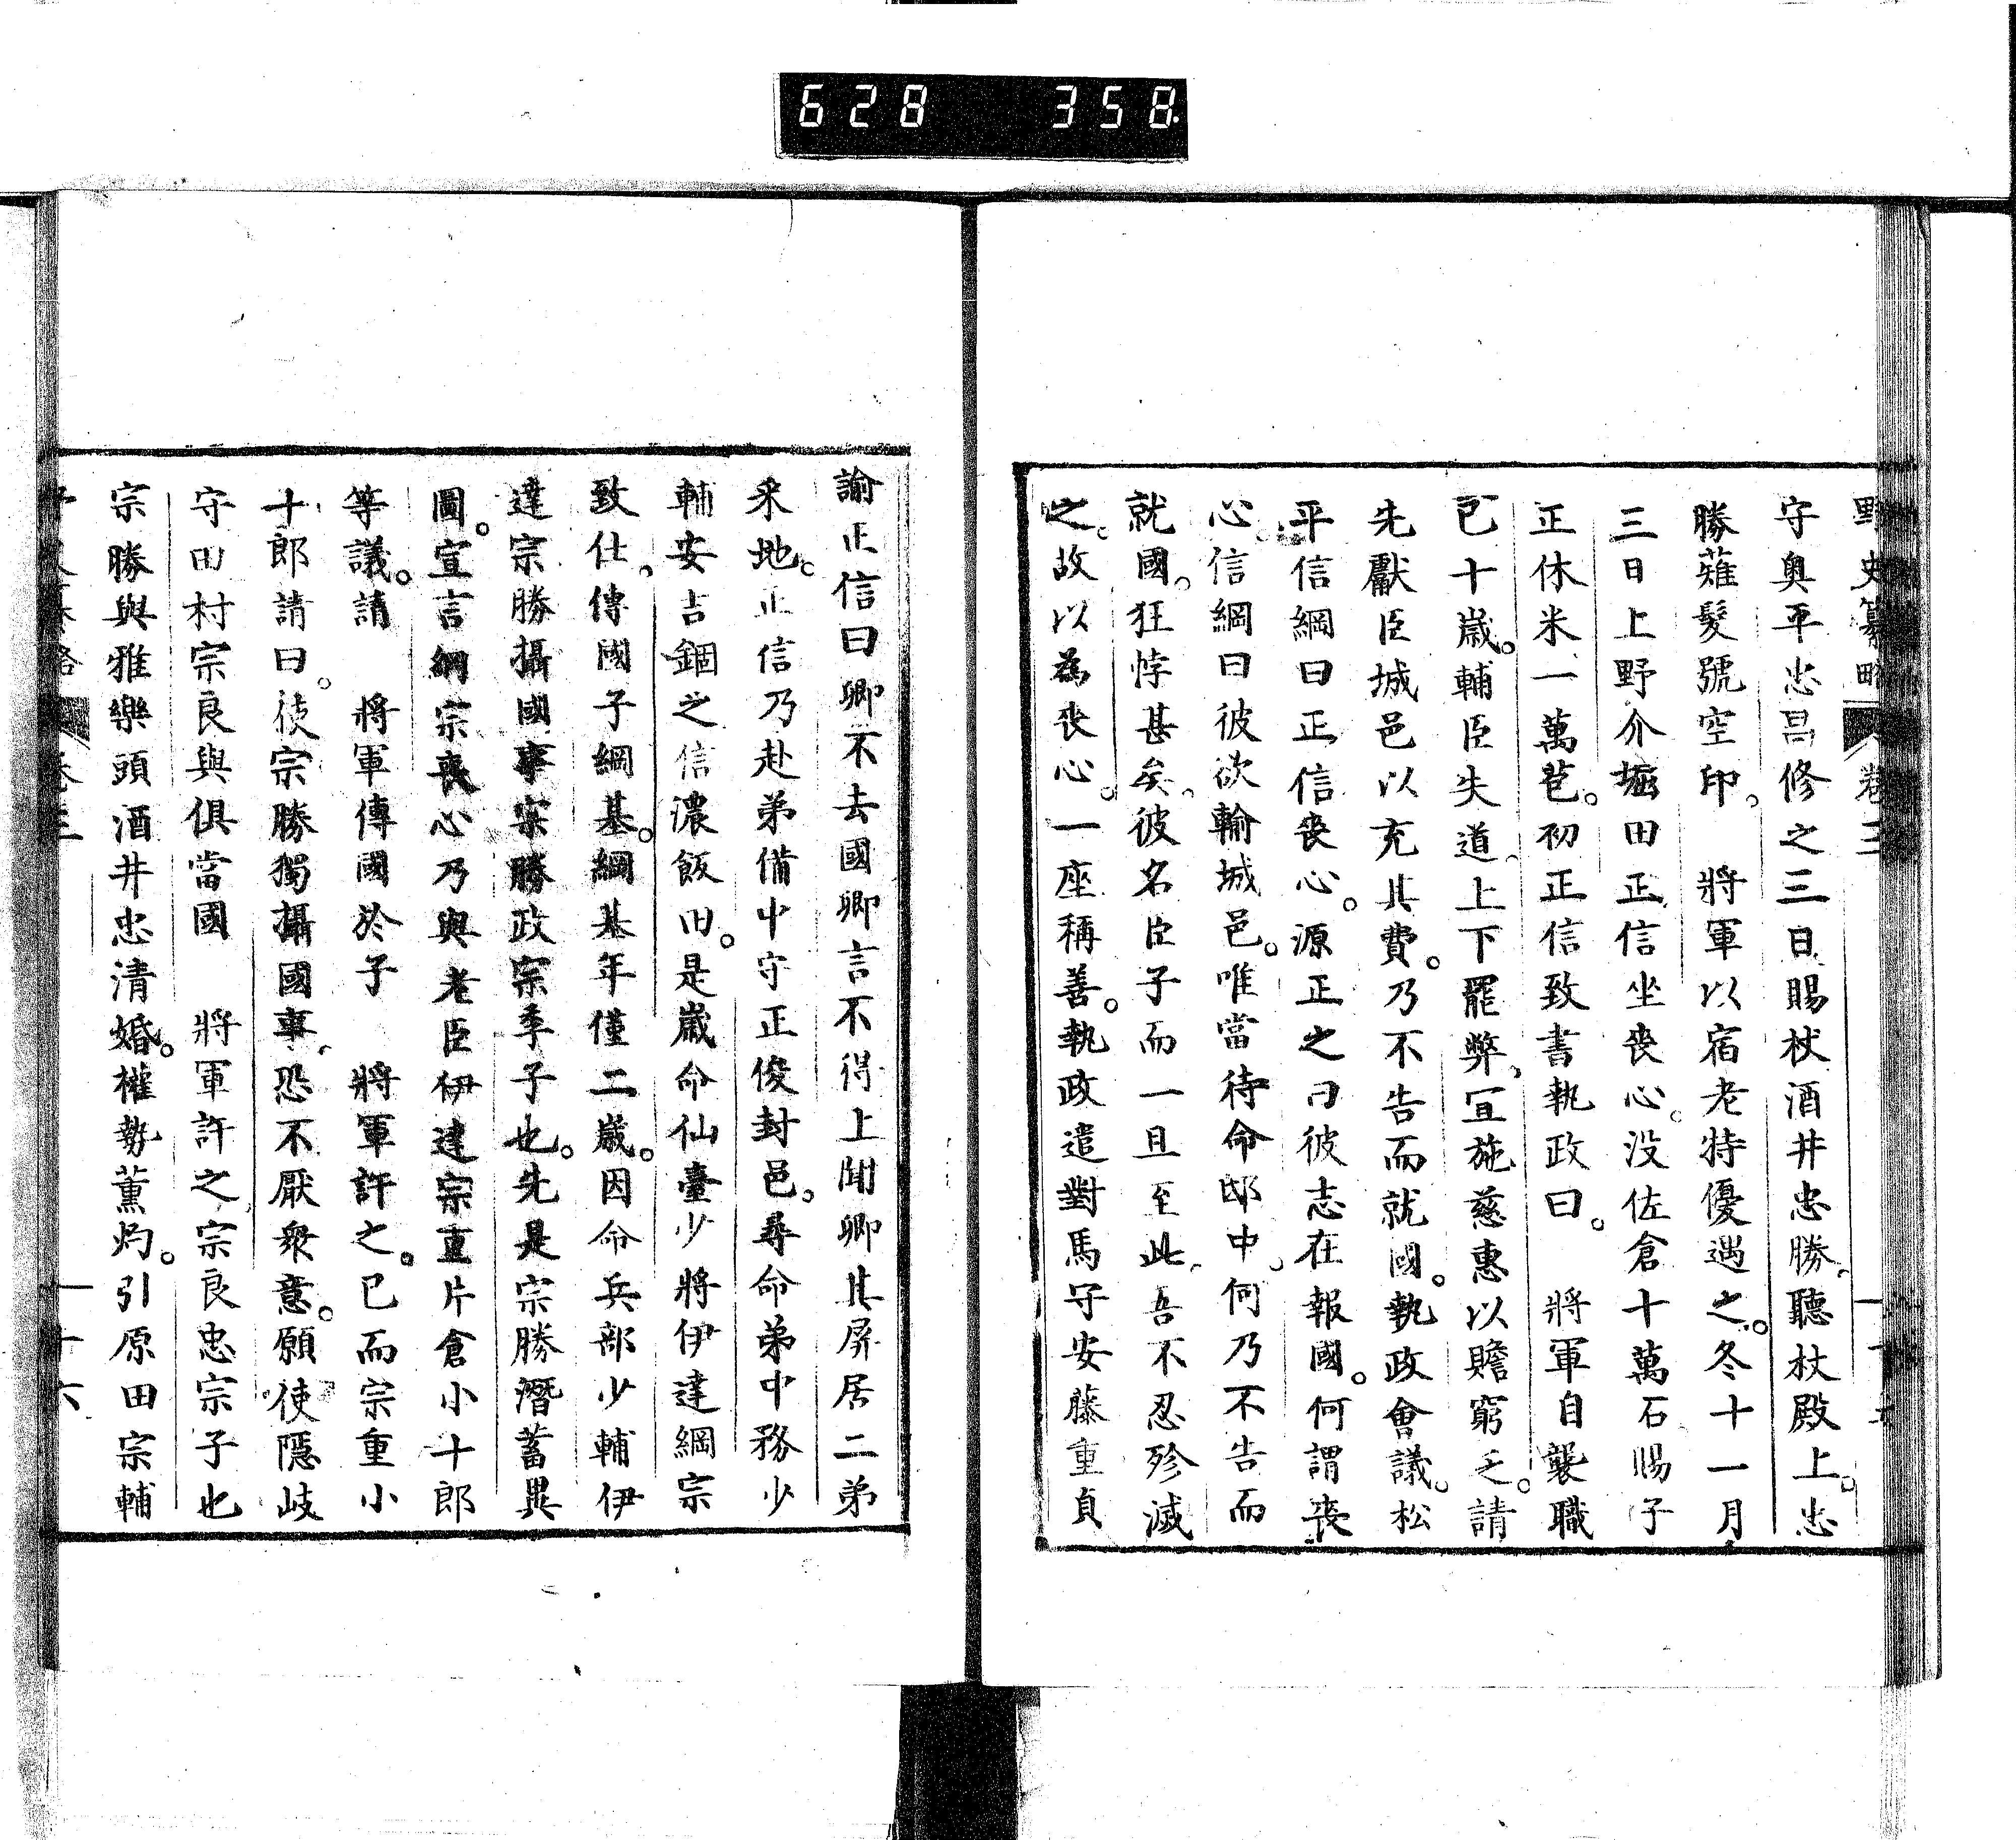 628 358
野史纂略 卷三
守奥平忠昌修之三日賜杖酒井忠勝聽杖殿上。忠
勝薙髮號空印 將軍以宿老特優遇之。冬十一月
三日上野介堀田正信坐喪心。没佐倉十萬石賜子
正休米一萬苞。初正信致書執政曰。 將軍自襲職
已十歲。輔臣失道上下罷弊宜施慈惠以贍窮乏。請
先獻臣城邑以充其費。乃不告而就國。執政會議。松
平信綱曰正信喪心。源正之曰彼志在報國。何謂喪
心。信綱曰彼欲輸城邑。唯當待命邸中。何乃不告而
就國。狂悖甚矣。彼名臣子而一旦至此吾不忍殄滅
之。故以爲喪心。一座稱善。執政遣對馬守安藤重貞
諭正信曰卿不去國卿言不得上聞卿其屏居二弟
釆地。正信乃赴弟備中守正俊封邑。尋命弟中務少
輔安吉錮之信濃飯田。是歲命仙臺少將伊達綱宗
致仕。傳國子綱基。綱基年僅二歲。因命兵部少輔伊
達宗勝攝國事宗勝政宗季子也。先是宗勝潛蓄異
圖。宣言綱宗喪心乃與老臣伊達宗重片倉小十郎
等議。請 將軍傳國於子 將軍許之。已而宗重小
十郎請曰。使宗勝獨攝國事恐不厭衆意。願使隱岐
守田村宗良與俱當國 將軍許之宗良忠宗子也
宗勝與雅樂頭酒井忠清婚。權勢薫灼。引原田宗輔
卷三 一十六